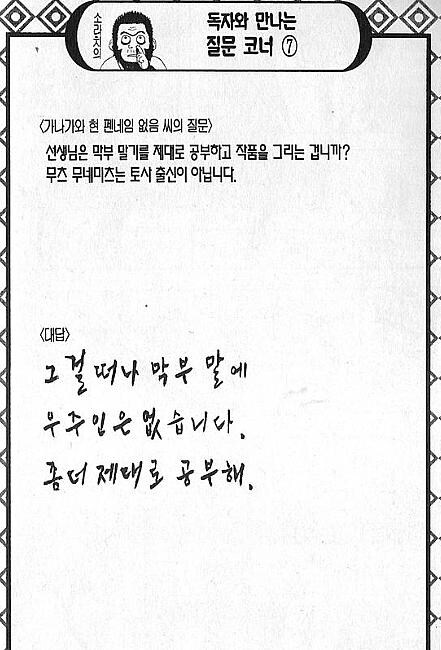 소라칫의
독자와 만나는
질문 코너 ⑦
<가나가와 현 펜네임 없음 씨의 질문>
선생님은 막부 말기를 제대로 공부하고 작품을 그리는 겁니까?
무츠 무네미츠는 토사 출신이 아닙니다.
<대답>
그걸 떠나 막부 말에
우주인은 없습니다.
좀 더 제대로 공부해.